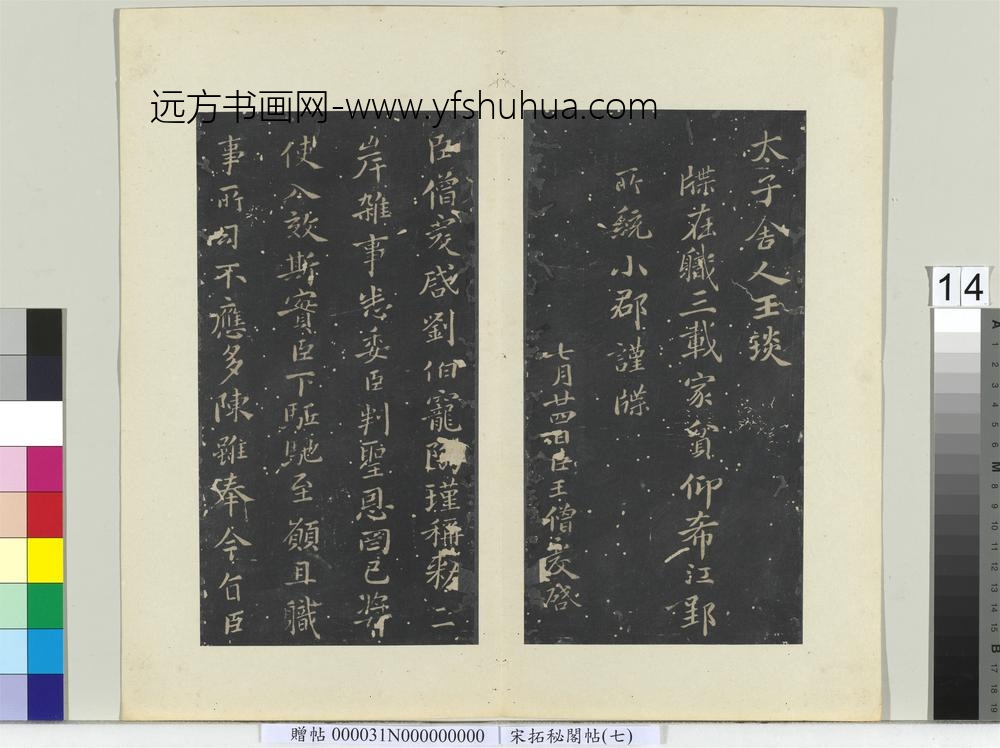 远方书画网-www.yfshuhua.com
太子舍人王琰
牒在職三載家貧仰希江郢
所統小郡謹牒
七月廿四日臣王僧虔啓
臣僧虔啓劉伯寵陶瑾稱敕二
岸雜事悉委臣判聖恩罔已獎
使令效斯實臣下駈馳至願且職
事所司不應多陳雖奉今旨臣
14
贈帖 000031N000000000 宋拓秘閣帖(七)
A 1 2 3 4 5 6 M 8 9 10 11 12 13 14 15 B 17 18 19